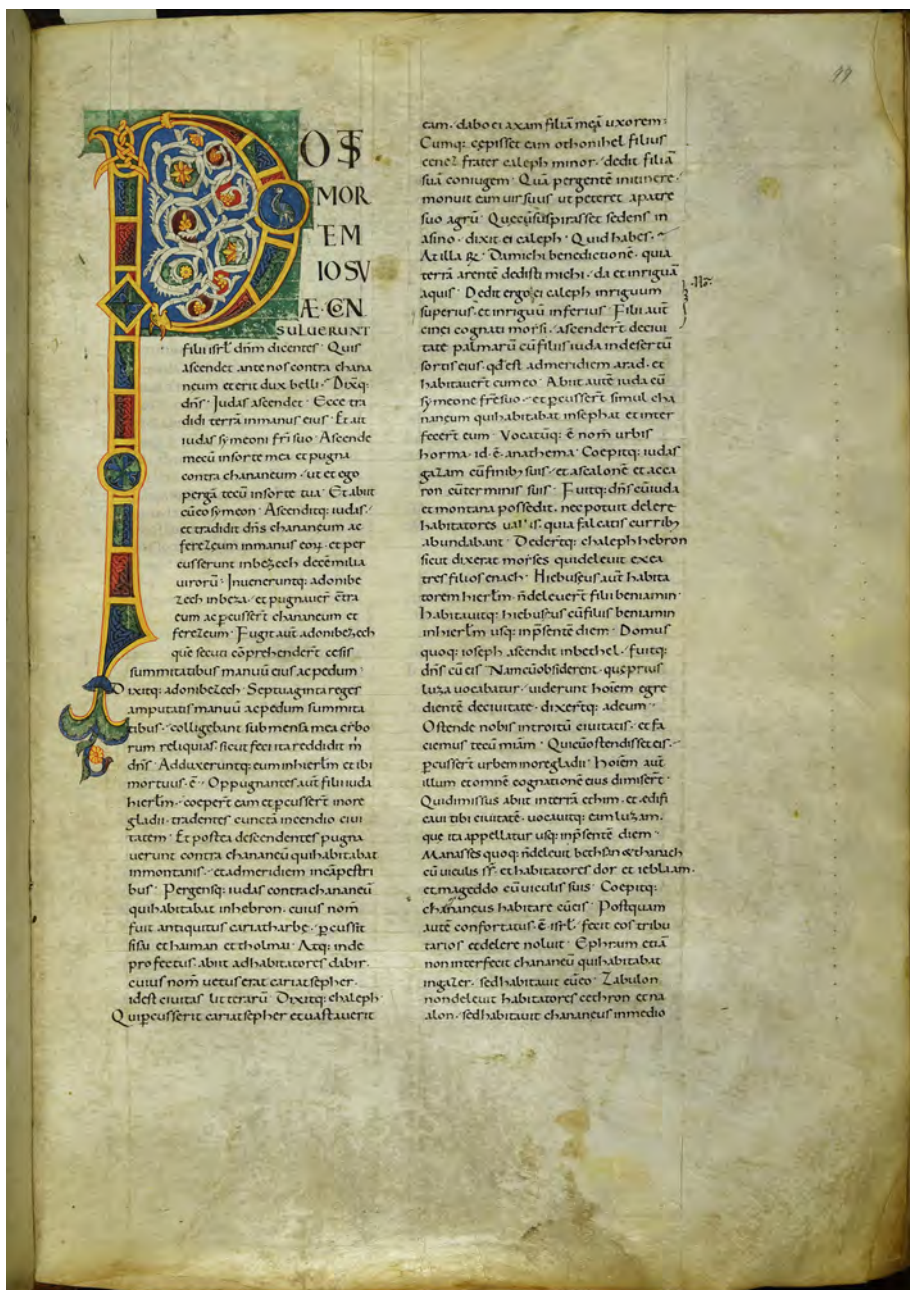 99
POST
MOR
TEM
IOSV
Æ·CON
SULUERUNT
filii isrł dñm dicentes· Quis
ascendet ante nos contra chana
neum et erit dux belli· Dixq:
dñs· Judas ascendet· Ecce tra
didi terrã inmanus eius· Et ait
iudas symeoni fri suo· Ascende
mecũ insorte mea et pugna
contra chananeum· ut et ego
pergã tecũ insorte tua· Et abiit
cũeo symeon· Ascenditq: iudas·
et tradidit dñs chananeum ac
ferezeum inmanus eoꝝ· et per
cusserunt inbezech decẽmilia
uirorũ· Inueneruntq: adonibe
zech inbeza· et pugnauer̃ cc̃tra
eum ac pcusser̃t chananeum et
ferezeum· Fugit aut̃ adonibezech
quẽ secuti cõprehender̃t cesis
summitatibus manuũ eius ac pedum·
Dixitq: adonibezech· Septuaginta reges
amputatis manuũ ac pedum summita
tibus· colligebant sub mensa mea cibo
rum reliquias· sicut feci ita reddidit m̃
dñs· Adduxeruntq: eum inhierłm et ibi
mortuus·ẽ· Oppugnantes aut̃ filii iuda
hierłm· coeper̃t eam et pcusser̃t inore
gladii· tradentes cunctã incendio ciui
tatem· Et postea descendentes pugna
uerunt contra chananeũ quihabitabat
inmontanis· et admeridiem incãpestri
bus· Pergensq: iudas contra chananeũ
quihabitabat inhebron· cuius nom̃
fuit antiquitus cariatharbe· pcussit
sisai et haiman et tholmai· Atq: inde
profectus abiit adhabitatores dabir·
cuius nom̃ uetus erat cariatsepher·
idest ciuitas litterarũ· Dixitq: chaleph·
Quipcusserit cariatsepher et uastauerit
eam· dabo ei axam filiã meã uxorem:
Cumq: cepisset eam othonihel filius
cenez frater caleph minor· dedit filiã
suã coniugem· Quã pergentẽ initinere·
monuit eam uir suus ut peteret apatre
suo agrũ· Quecũsuspirasset sedens in
asino· dixit ei caleph· Quid habes·
At illa R̃· Damichi benedictionẽ· quia
terrã arentẽ dedisti michi· da et inriguã
aquis· Dedit ergo ei caleph inriguum
superius· et inriguũ inferius· Filii aut̃
cinei cognati moysi· ascender̃t deciui
tate palmarũ cũfiliis iuda indesertũ
sortis eius· qđ est admeridiem arad· et
habitauer̃t cum eo· Abiit autẽ iuda cũ
symeone fr̃esuo· et pcusser̃t simul cha
naneum quihabitabat insephat et inter
fecer̃t eum· Vocatũq: ẽ nom̃ urbis
horma· id·ẽ· anathema· Coepitq: iudas
gazam cũfinib; suis· et ascalonẽ et acca
ron cũterminis suis· Fuitq: dñs cũiuda
et montana possedit· nec potuit delere
habitatores uallis· quia falcatis currib;
abundabant· Deder̃tq: chaleph hebron
sicut dixerat morses quideleuit exea
tres filios enach· Hiebuseũ aut̃ habita
torem hierłm· ñdeleuer̃t filii beniamin·
habitauitq: hiebuseus cũfiliis beniamin
inhierłm usq: inp̃sentẽ diem· Domus
quoq: ioseph ascendit inbethel· fuitq:
dñs cũ eis· Namcũobsiderent· que prius
luza uocabatur· uiderunt hoĩem egre
dientẽ deciuitate· dixer̃tq: adeum·
Ostende nobis introitũ ciuitatis· et fa
ciemus tecũ miãm· Quicũostendisset eis·
pcusser̃t urbem inoregladii· hoĩem aut̃
illum et omnẽ cognationẽ eius dimiser̃t·
Quidimissus abiit interrã ethim· et edifi
cauit ibi ciuitatẽ· uocauitq: eam luzam·
que ita appellatur usq: inp̃sentẽ diem·
Manasses quoq: ñdeleuit bethsan & thanach
cũ uiculis sĩs· et habitatores dor et ieblaam·
et mageddo cũ uiculis suis· Coepitq:
chananeus habitare cũeis· Postquam
autẽ confortatus·ẽ isrł· fecit eos tribu
tarios et delere noluit· Ephraim etiã
non interfecit chananeũ quihabitabat
ingazer· sed habitauit cũeo· Zabulon
nondeleuit habitatores cethron et na
alon· sed habitauit chananeus inmedio